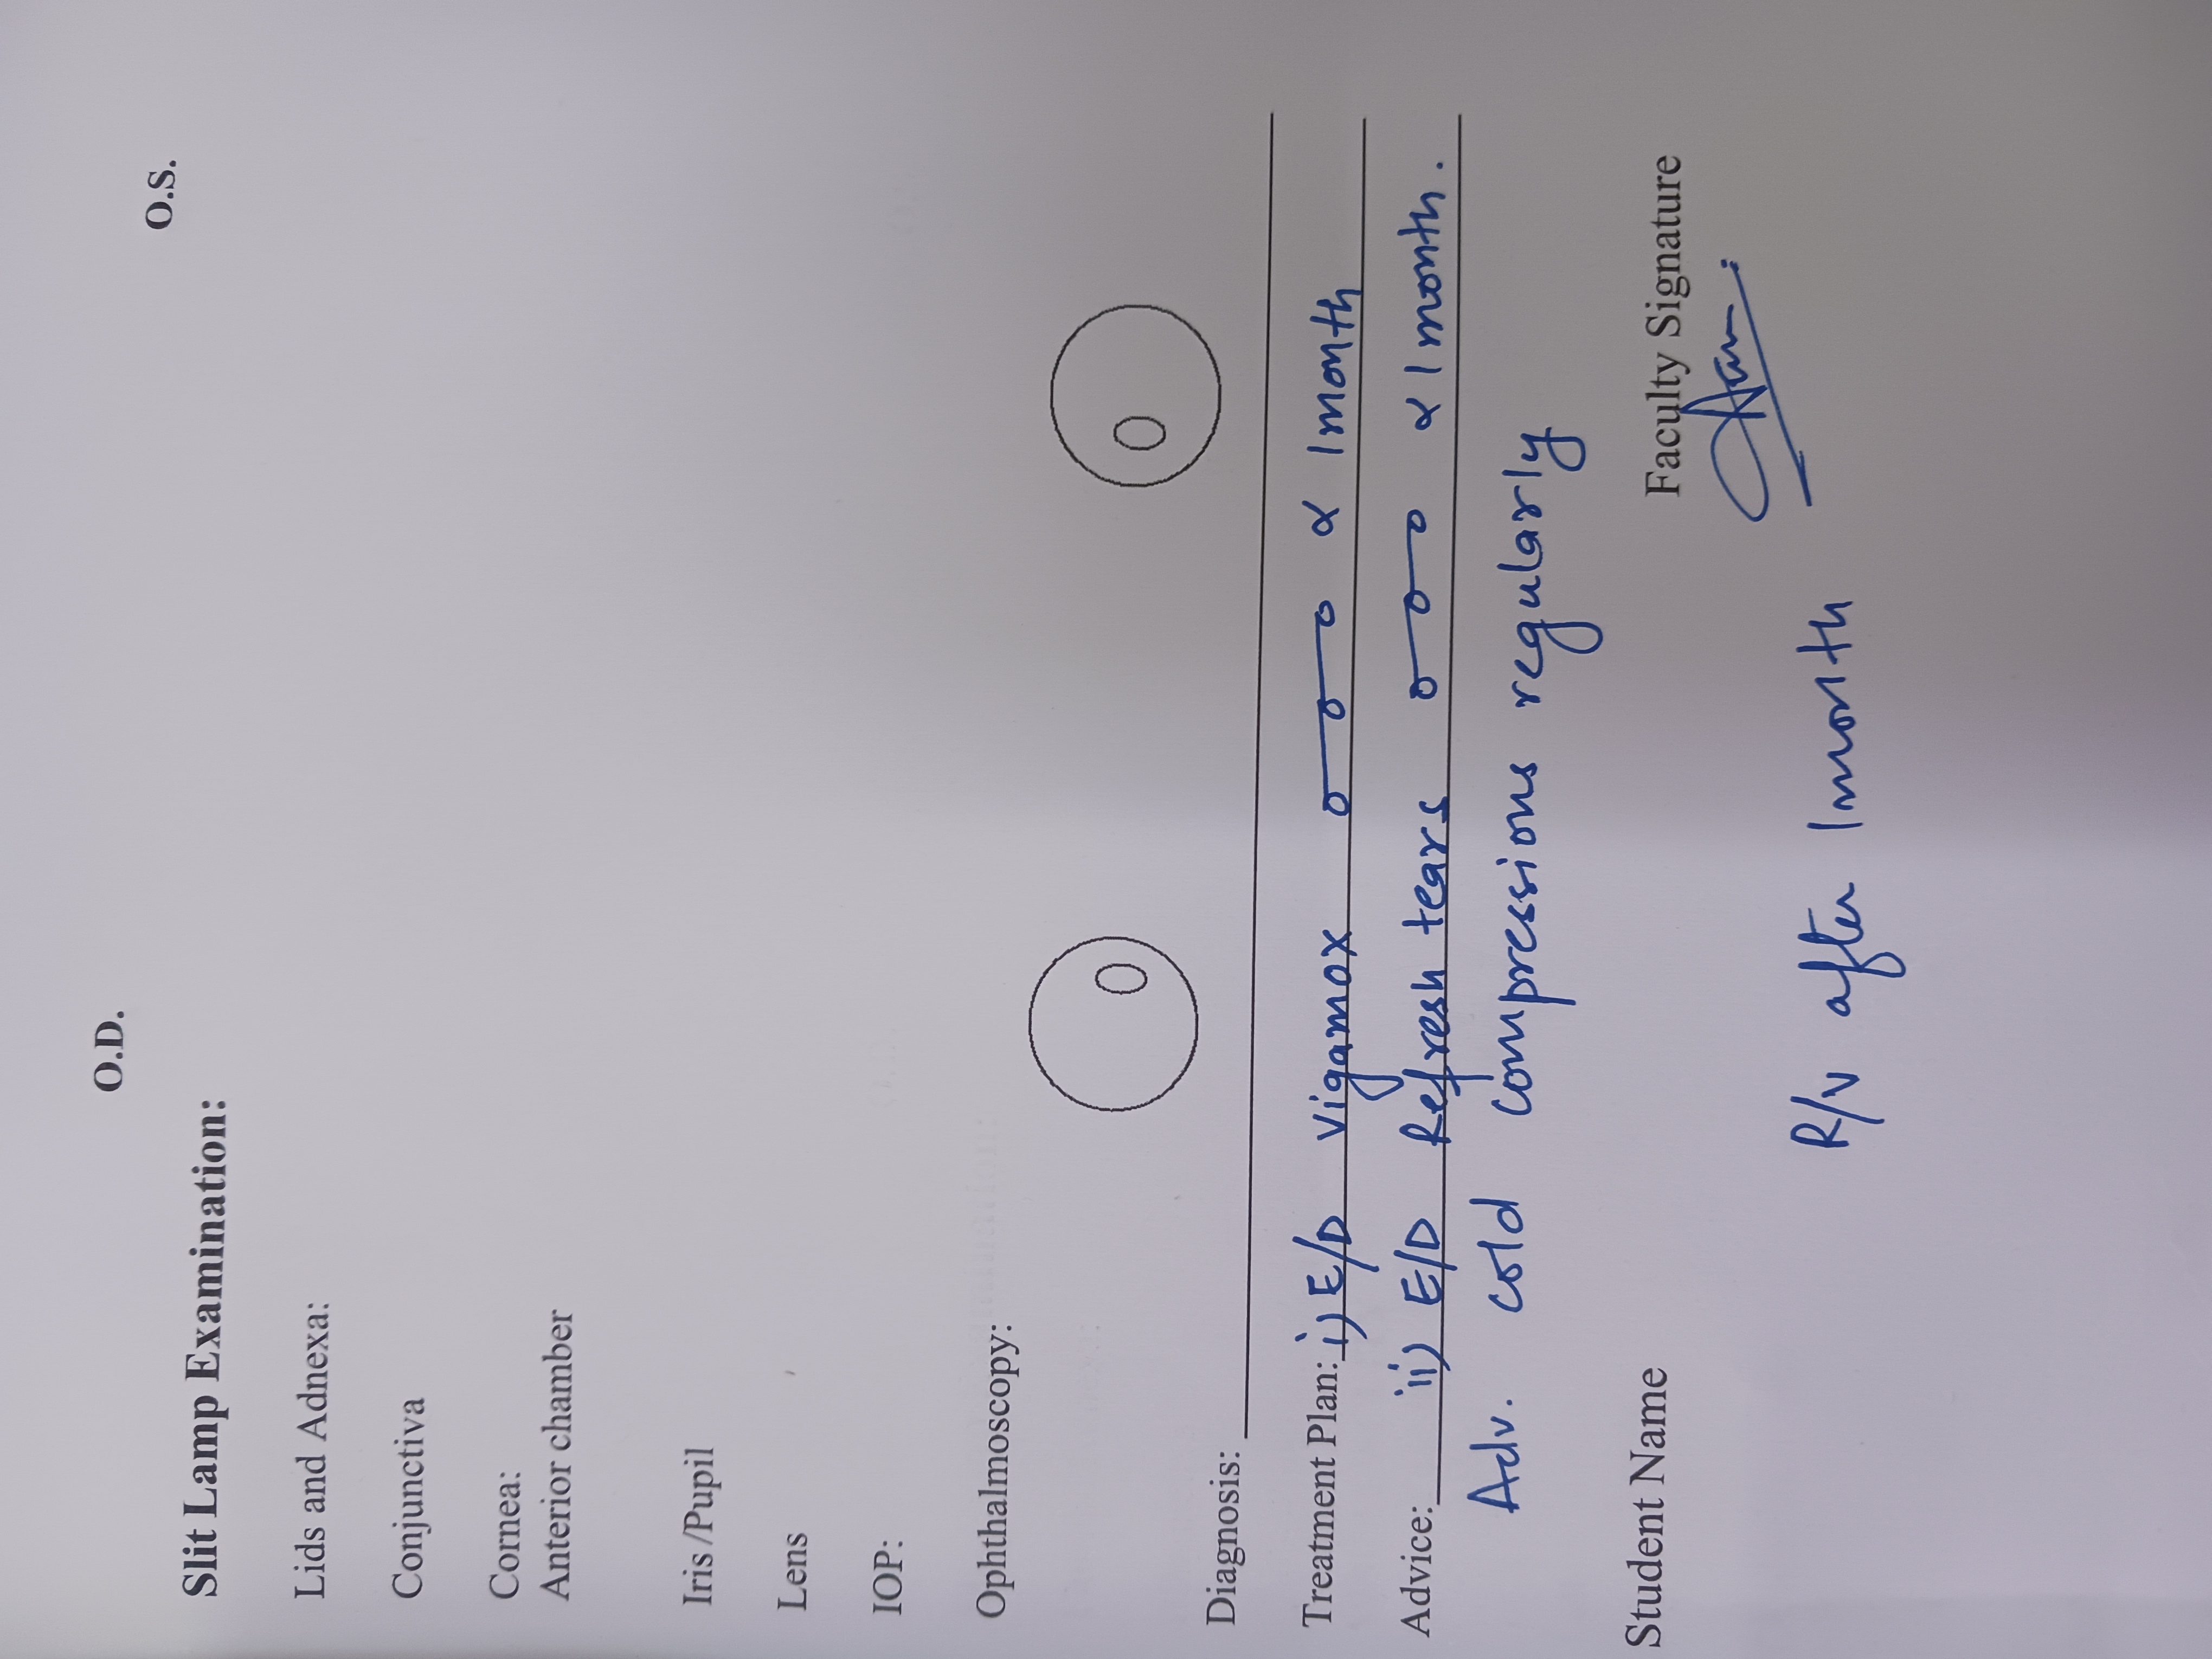 O.D.
O.S.
Slit Lamp Examination:
Lids and Adnexa:
Conjunctiva
Cornea:
Anterior chamber
Iris /Pupil
Lens
IOP:
Ophthalmoscopy:
Diagnosis:
Treatment Plan: i) E/D Vigamox o—o—o x 1 month
Advice: ii) E/D Refresh tears o—o—o x 1 month.
Adv. cold compressions regularly
Student Name
Faculty Signature
R/v after 1 month